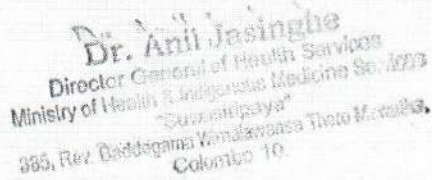 Dr. Anil Jasinghe
Director General of Health Services
Ministry of Health & Indigenous Medicine Services
"Suwasiripaya"
385, Rev. Baddegama Wimalawansa Thero Mawatha,
Colombo 10.